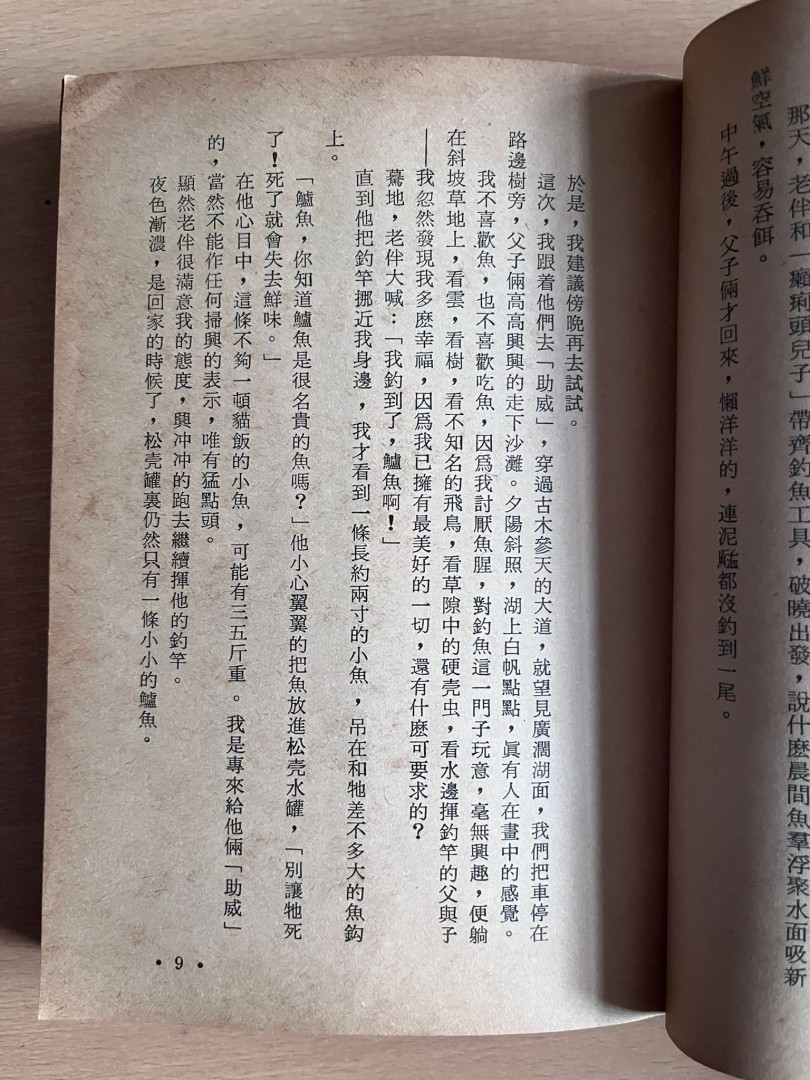 那天，老伴和一癩痢頭兒子」帶齊釣魚工具，破曉出發，說什麼晨間魚羣浮聚水面吸新
鮮空氣，容易吞餌。
中午過後，父子倆才回來，懶洋洋的，連泥鯭都沒釣到一尾。
於是，我建議傍晚再去試試。
這次，我跟着他們去「助威」，穿過古木參天的大道，就望見廣濶湖面，我們把車停在
路邊樹旁，父子倆高高興興的走下沙灘。夕陽斜照，湖上白帆點點，眞有人在畫中的感覺。
我不喜歡魚，也不喜歡吃魚，因爲我討厭魚腥，對釣魚這一門子玩意，毫無興趣，便躺
在斜坡草地上，看雲，看樹，看不知名的飛鳥，看草隙中的硬壳虫，看水邊揮釣竿的父與子
——我忽然發現我多麽幸福，因爲我已擁有最美好的一切，還有什麽可要求的？
驀地，老伴大喊：「我釣到了，鱸魚啊！」
直到他把釣竿挪近我身邊，我才看到一條長約兩寸的小魚，吊在和牠差不多大的魚鈎
上。
「鱸魚，你知道鱸魚是很名貴的魚嗎？」他小心翼翼的把魚放進松壳水罐，「別讓牠死
了！死了就會失去鮮味。」
在他心目中，這條不夠一頓貓飯的小魚，可能有三五斤重。我是專來給他倆「助威」
的，當然不能作任何掃興的表示，唯有猛點頭。
顯然老伴很滿意我的態度，興冲冲的跑去繼續揮他的釣竿。
夜色漸濃，是回家的時候了，松壳罐裏仍然只有一條小小的鱸魚。
• 9 •